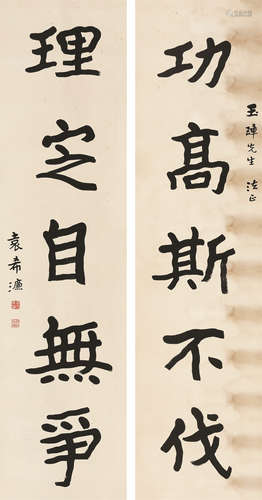 功高斯不伐
玉璋先生 法正
理定自無爭
袁希濂